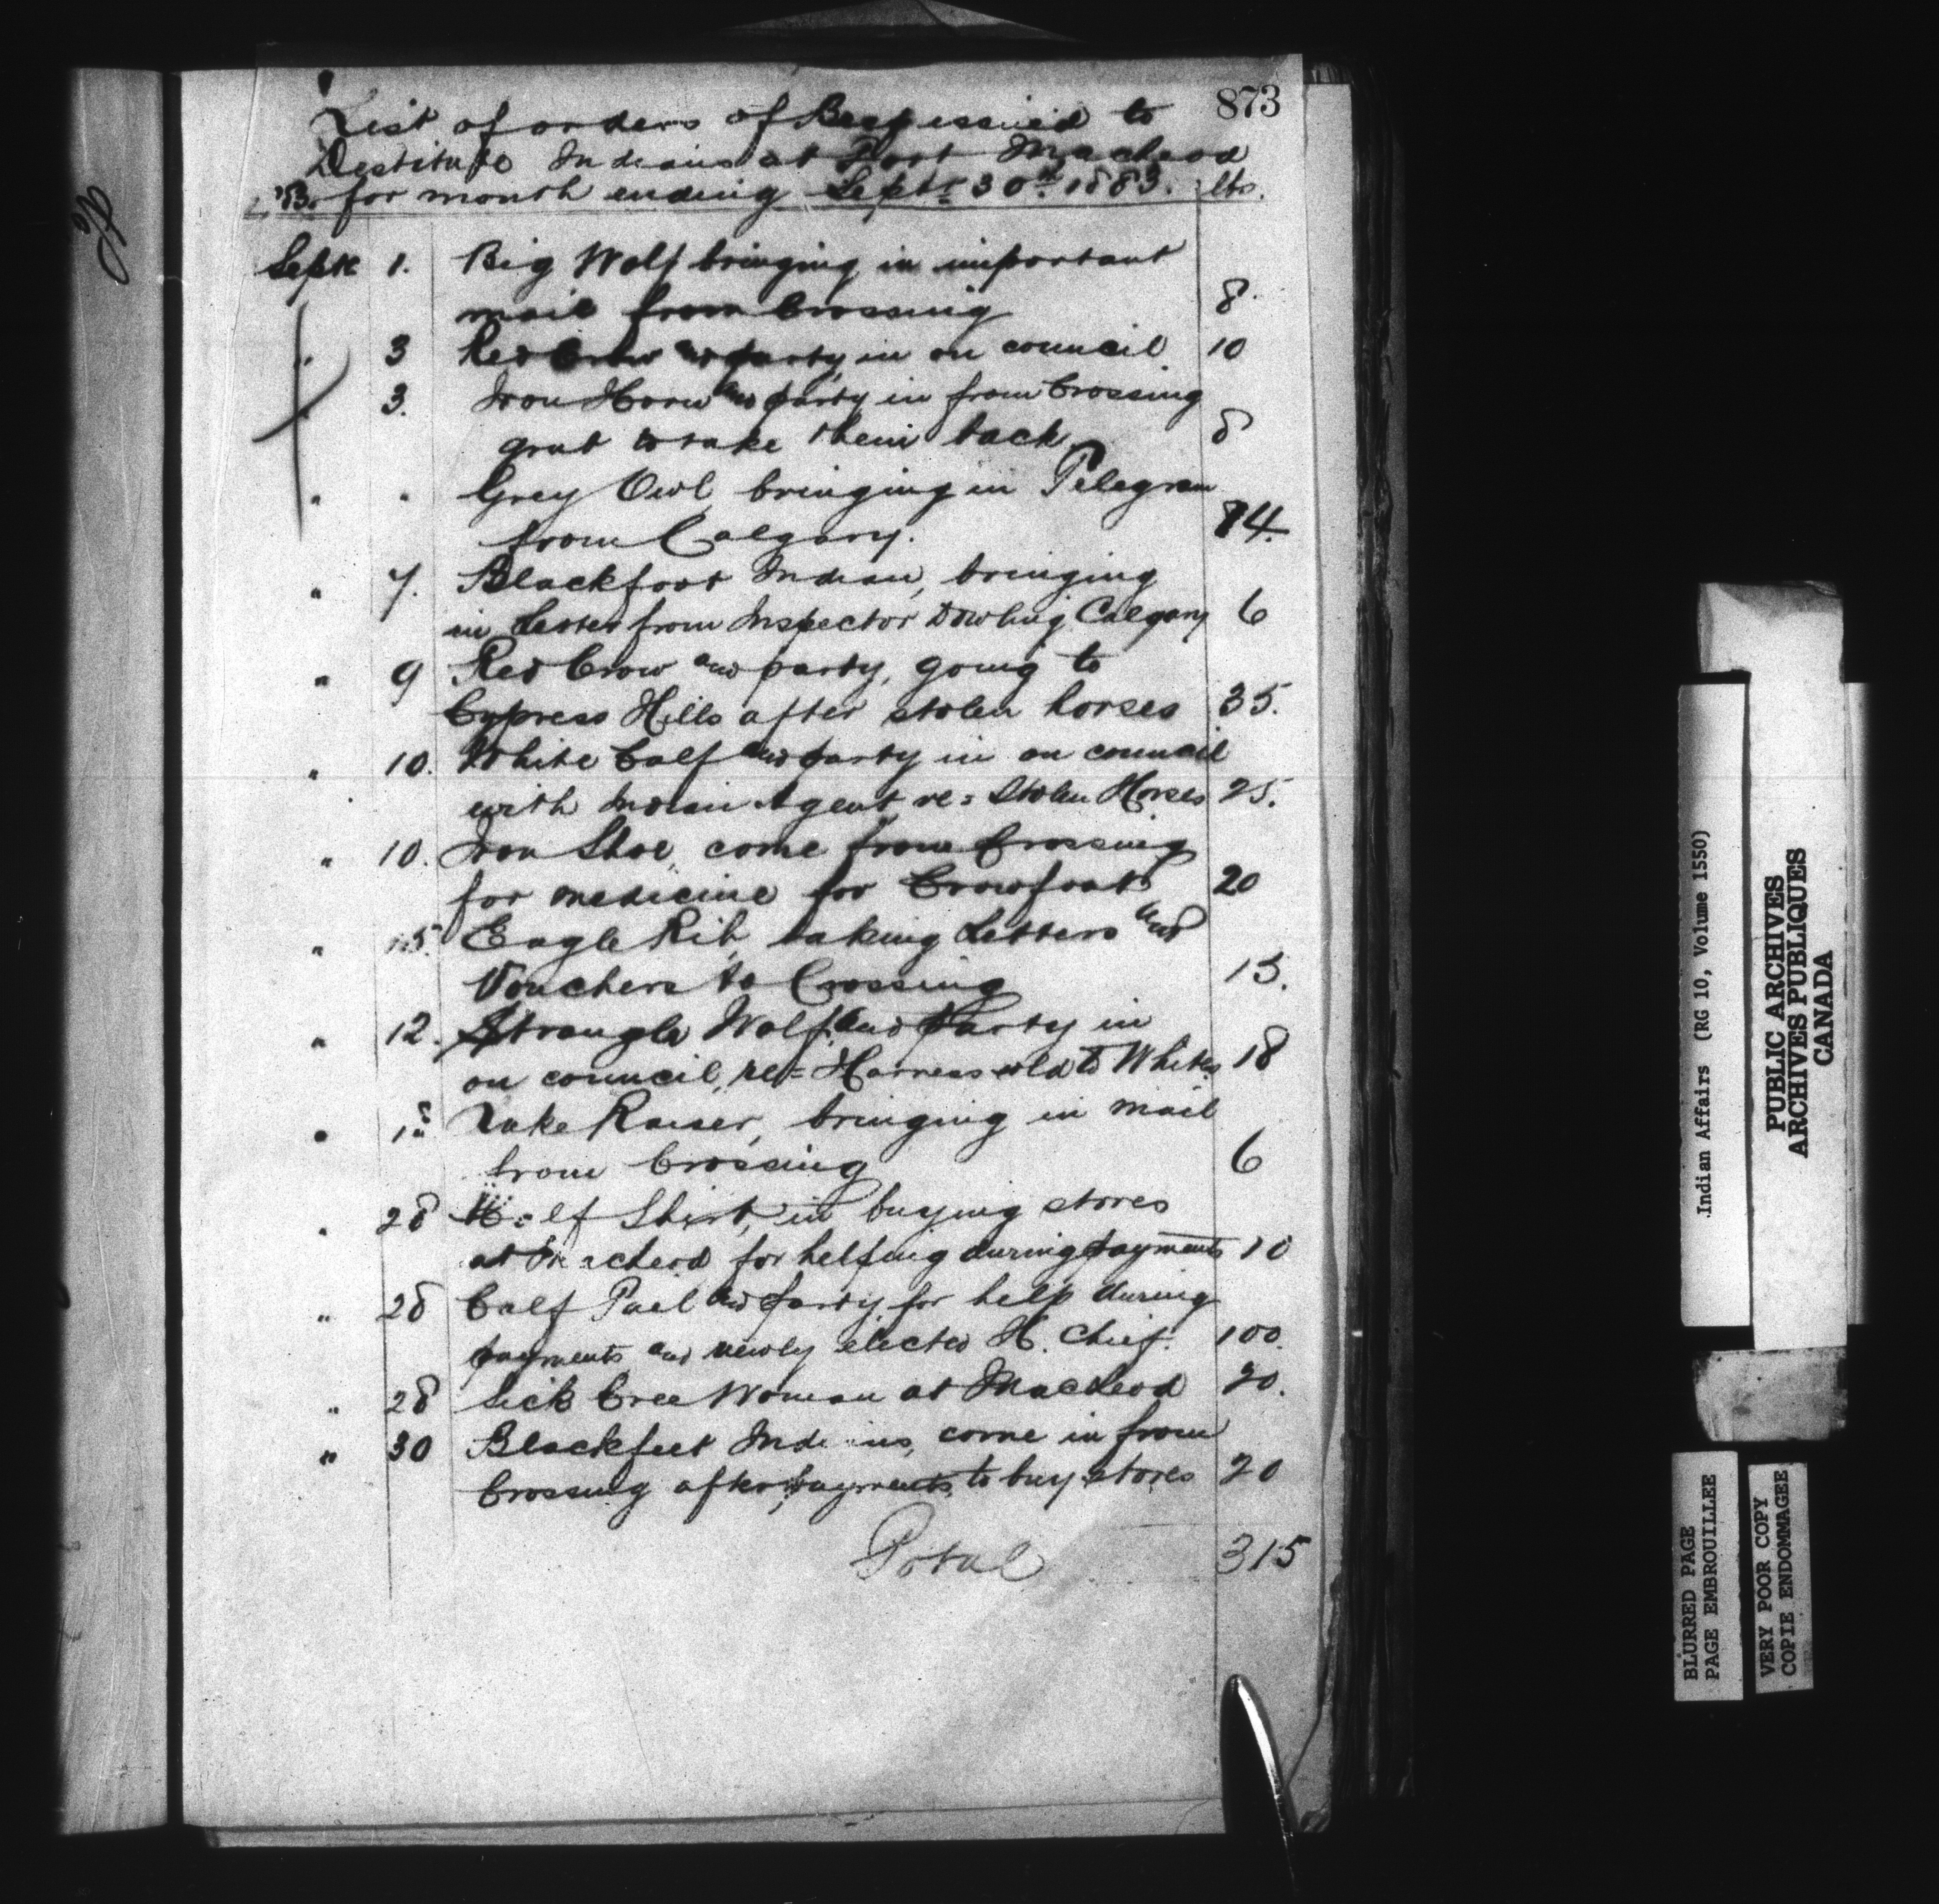 873
List of orders of Beef issued to
Destitute Indians at Fort Macleod
for month ending Septr 30th 1883. lbs.
Septr 1. Big Wolf bringing in important
mail from Crossing 8
" 3 Red Crow and party in on council 10
" 3. Iron Horn and party in from Crossing
grub to take them back 8
" " Grey Owl bringing in Telegram
from Calgary. 14.
" 7. Blackfoot Indian, bringing
in Letter from Inspector Dowling Calgary 6
" 9 Red Crow and party, going to
Cypress Hills after stolen horses 35.
" 10. White Calf and party in on council
with Indian Agent re= Stolen Horses 25.
" 10. Iron Shoe, come from Crossing
for medicine for Crowfoot 20
" Eagle Rib, taking Letters and
Vouchers to Crossing 15.
" 12. Strangle Wolf and Party in
on council, re= Harness sold to Whites 18
" Raiser, bringing in mail
from Crossing 6
" 28 Half Shirt, in buying stores
at Macleod for helping during payments 10
" 28 Calf Pail and party, for help during
payments and newly elected H. Chief. 100.
" 28 Sick Cree Woman at MacLeod 20.
" 30 Blackfeet Indians, come in from
Crossing after payments, to buy stores 20
Total 315
.Indian Affairs (RG 10, Volume 1550)
PUBLIC ARCHIVES
ARCHIVES PUBLIQUES
CANADA
BLURRED PAGE
PAGE EMBROUILLEE
VERY POOR COPY
COPIE ENDOMMAGEE